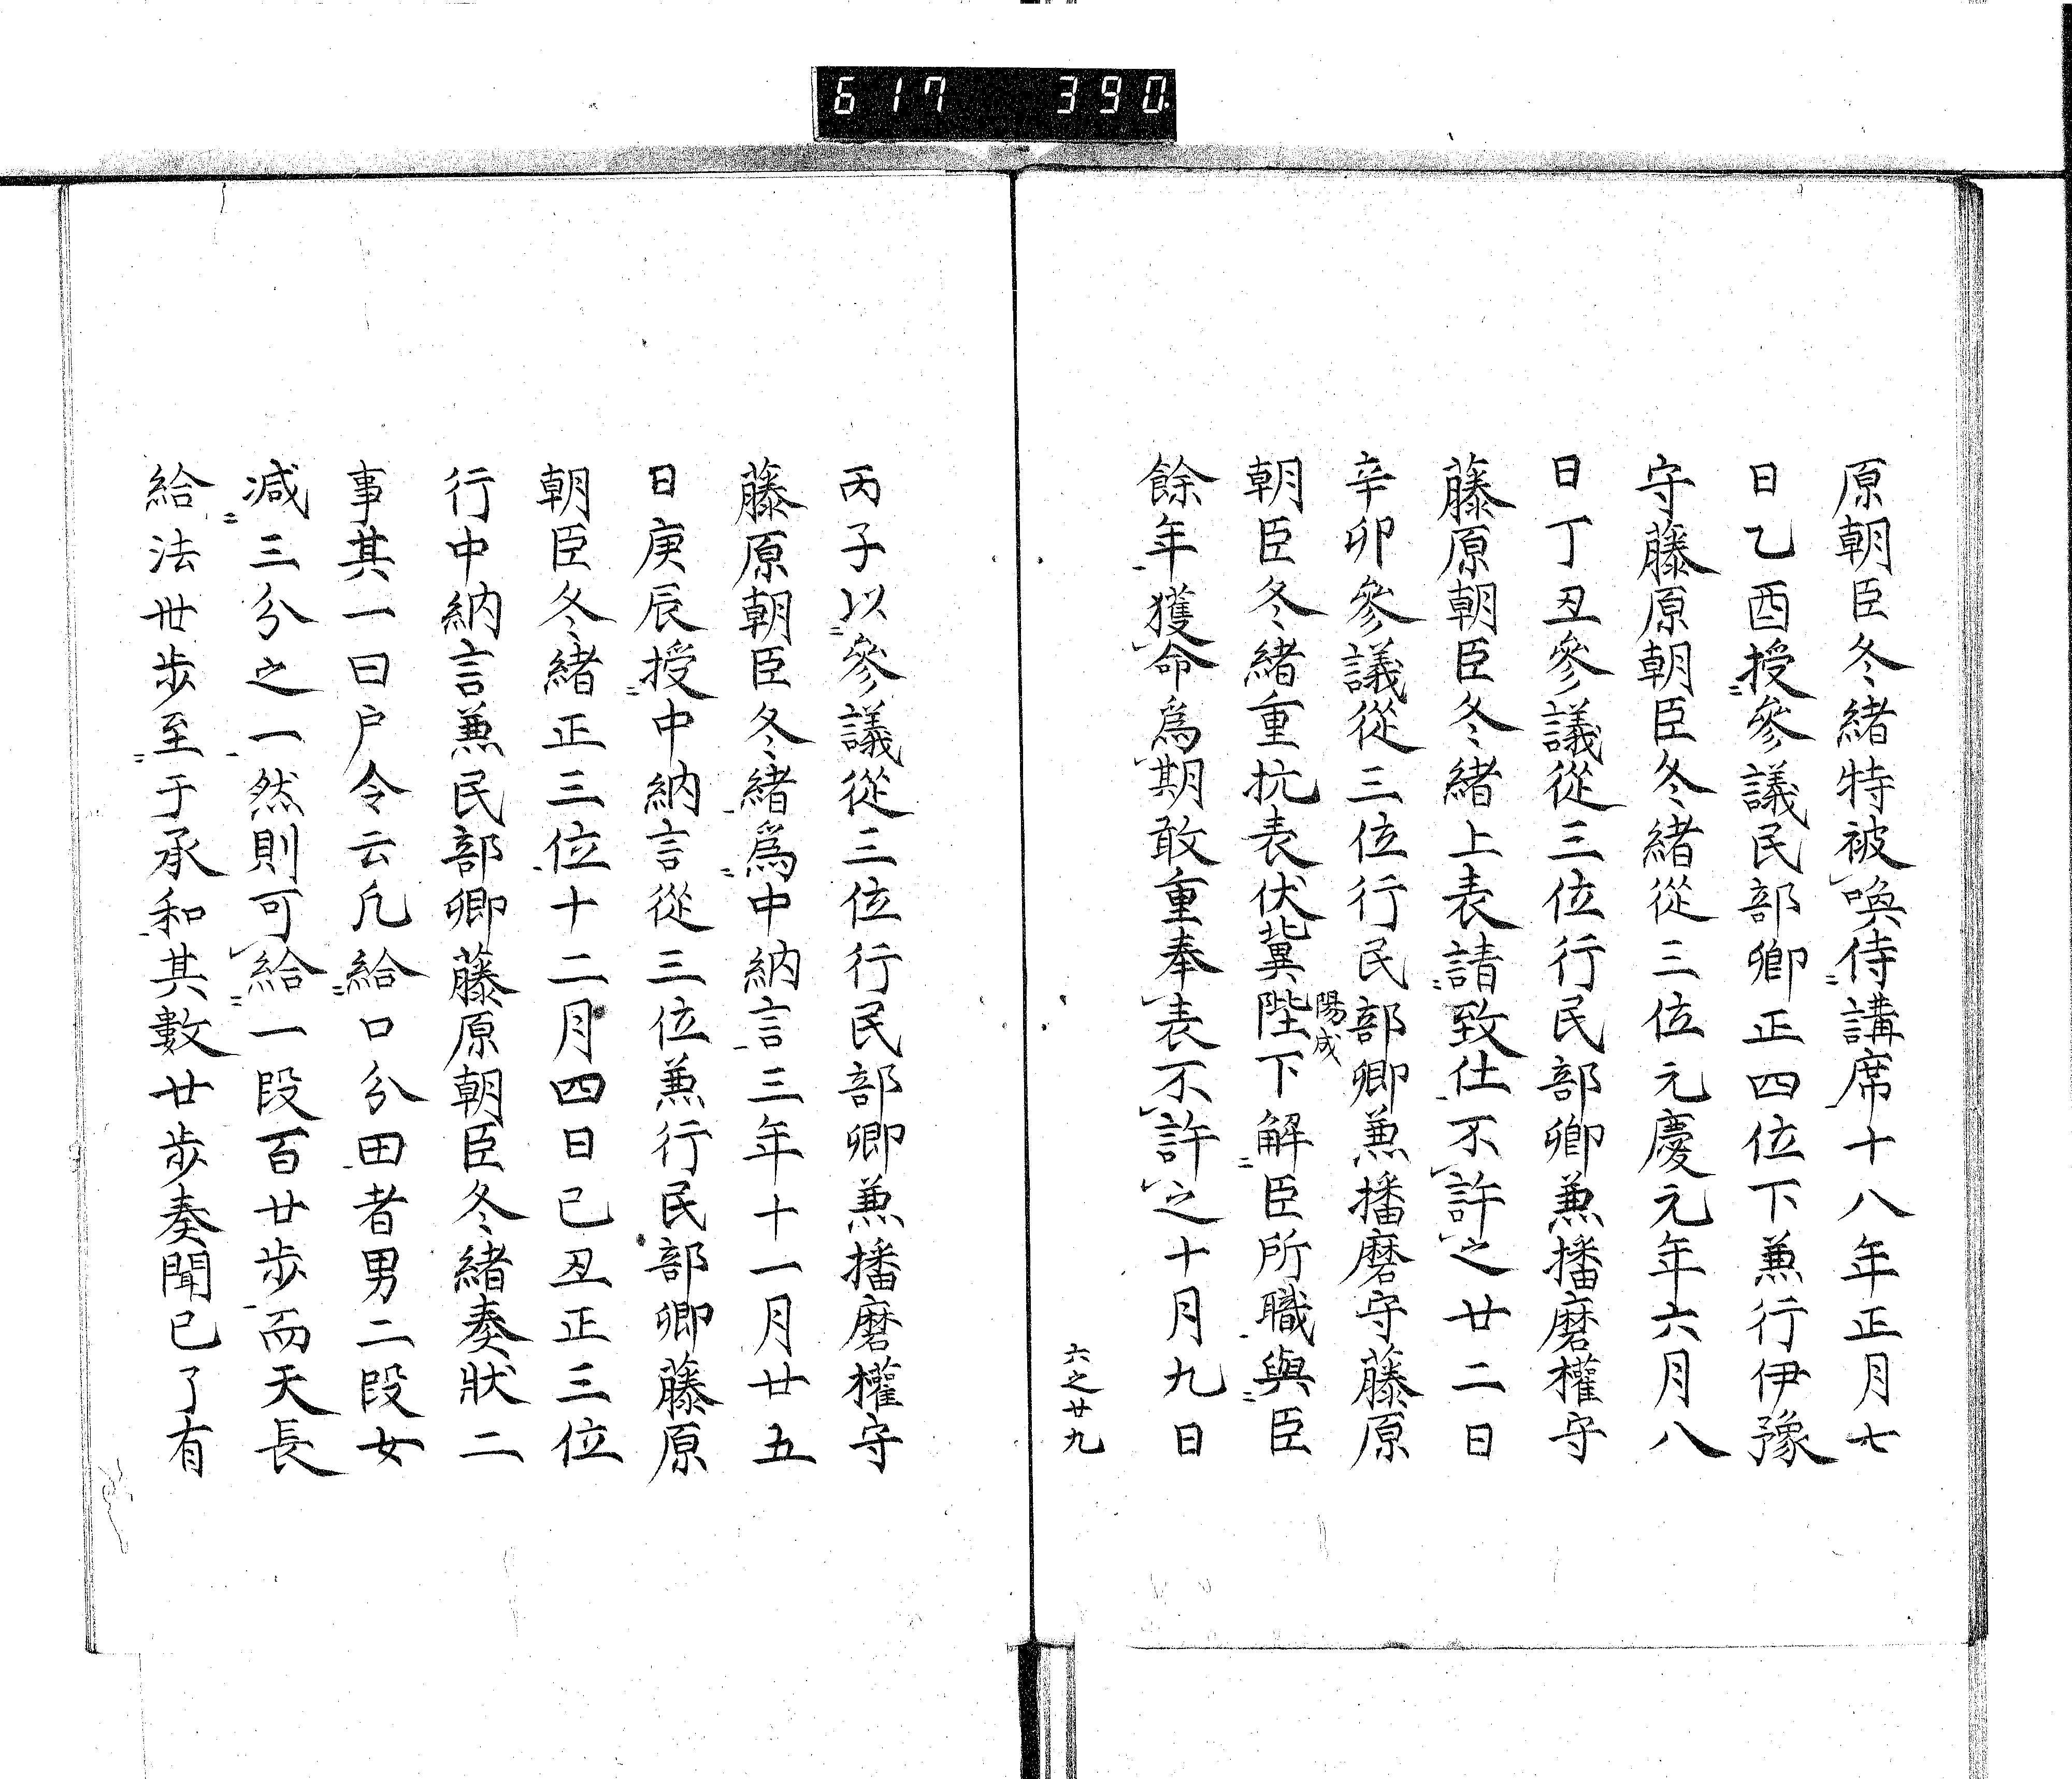 617 390
原朝臣冬緒特被喚侍講席十八年正月七
日乙酉授參議民部卿正四位下兼行伊豫
守藤原朝臣冬緒從三位元慶元年六月八
日丁丑參議從三位行民部卿兼播磨權守
藤原朝臣冬緒上表請致仕不許之廿二日
辛卯參議從三位行民部卿兼播磨守藤原
陽成
朝臣冬緒重抗表伏冀陛下解臣所職與臣
餘年獲命爲期敢重奉表不許之十月九日
六之廿九
丙子以參議從三位行民部卿兼播磨權守
藤原朝臣冬緒爲中納言三年十一月廿五
日庚辰授中納言從三位兼行民部卿藤原
朝臣冬緒正三位十二月四日己丑正三位
行中納言兼民部卿藤原朝臣冬緒奏狀二
事其一曰户令云凡給口分田者男二段女
减三分之一然則可給一段百廿歩而天長
給法丗歩至于承和其數廿歩奏聞已了有